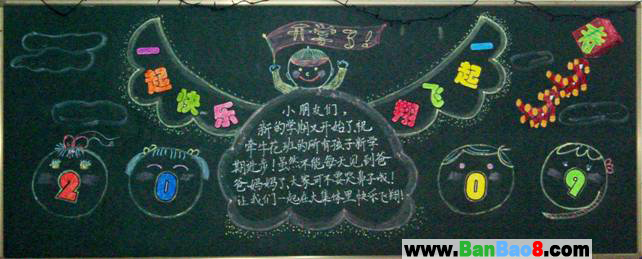 开学了!
春
一起快乐
一起飞翔
小朋友们,
新的学期又开始了,祝
牵牛花班的所有孩子新学
期进步!虽然不能每天见到爸
爸妈妈了,大家可不要哭鼻子哦!
让我们一起在大集体里快乐飞翔!
2009
www.BanBao8.com